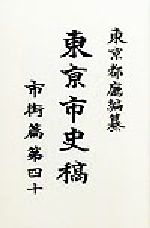 東亰都廳編纂
東亰市史稿
市街篇第四十